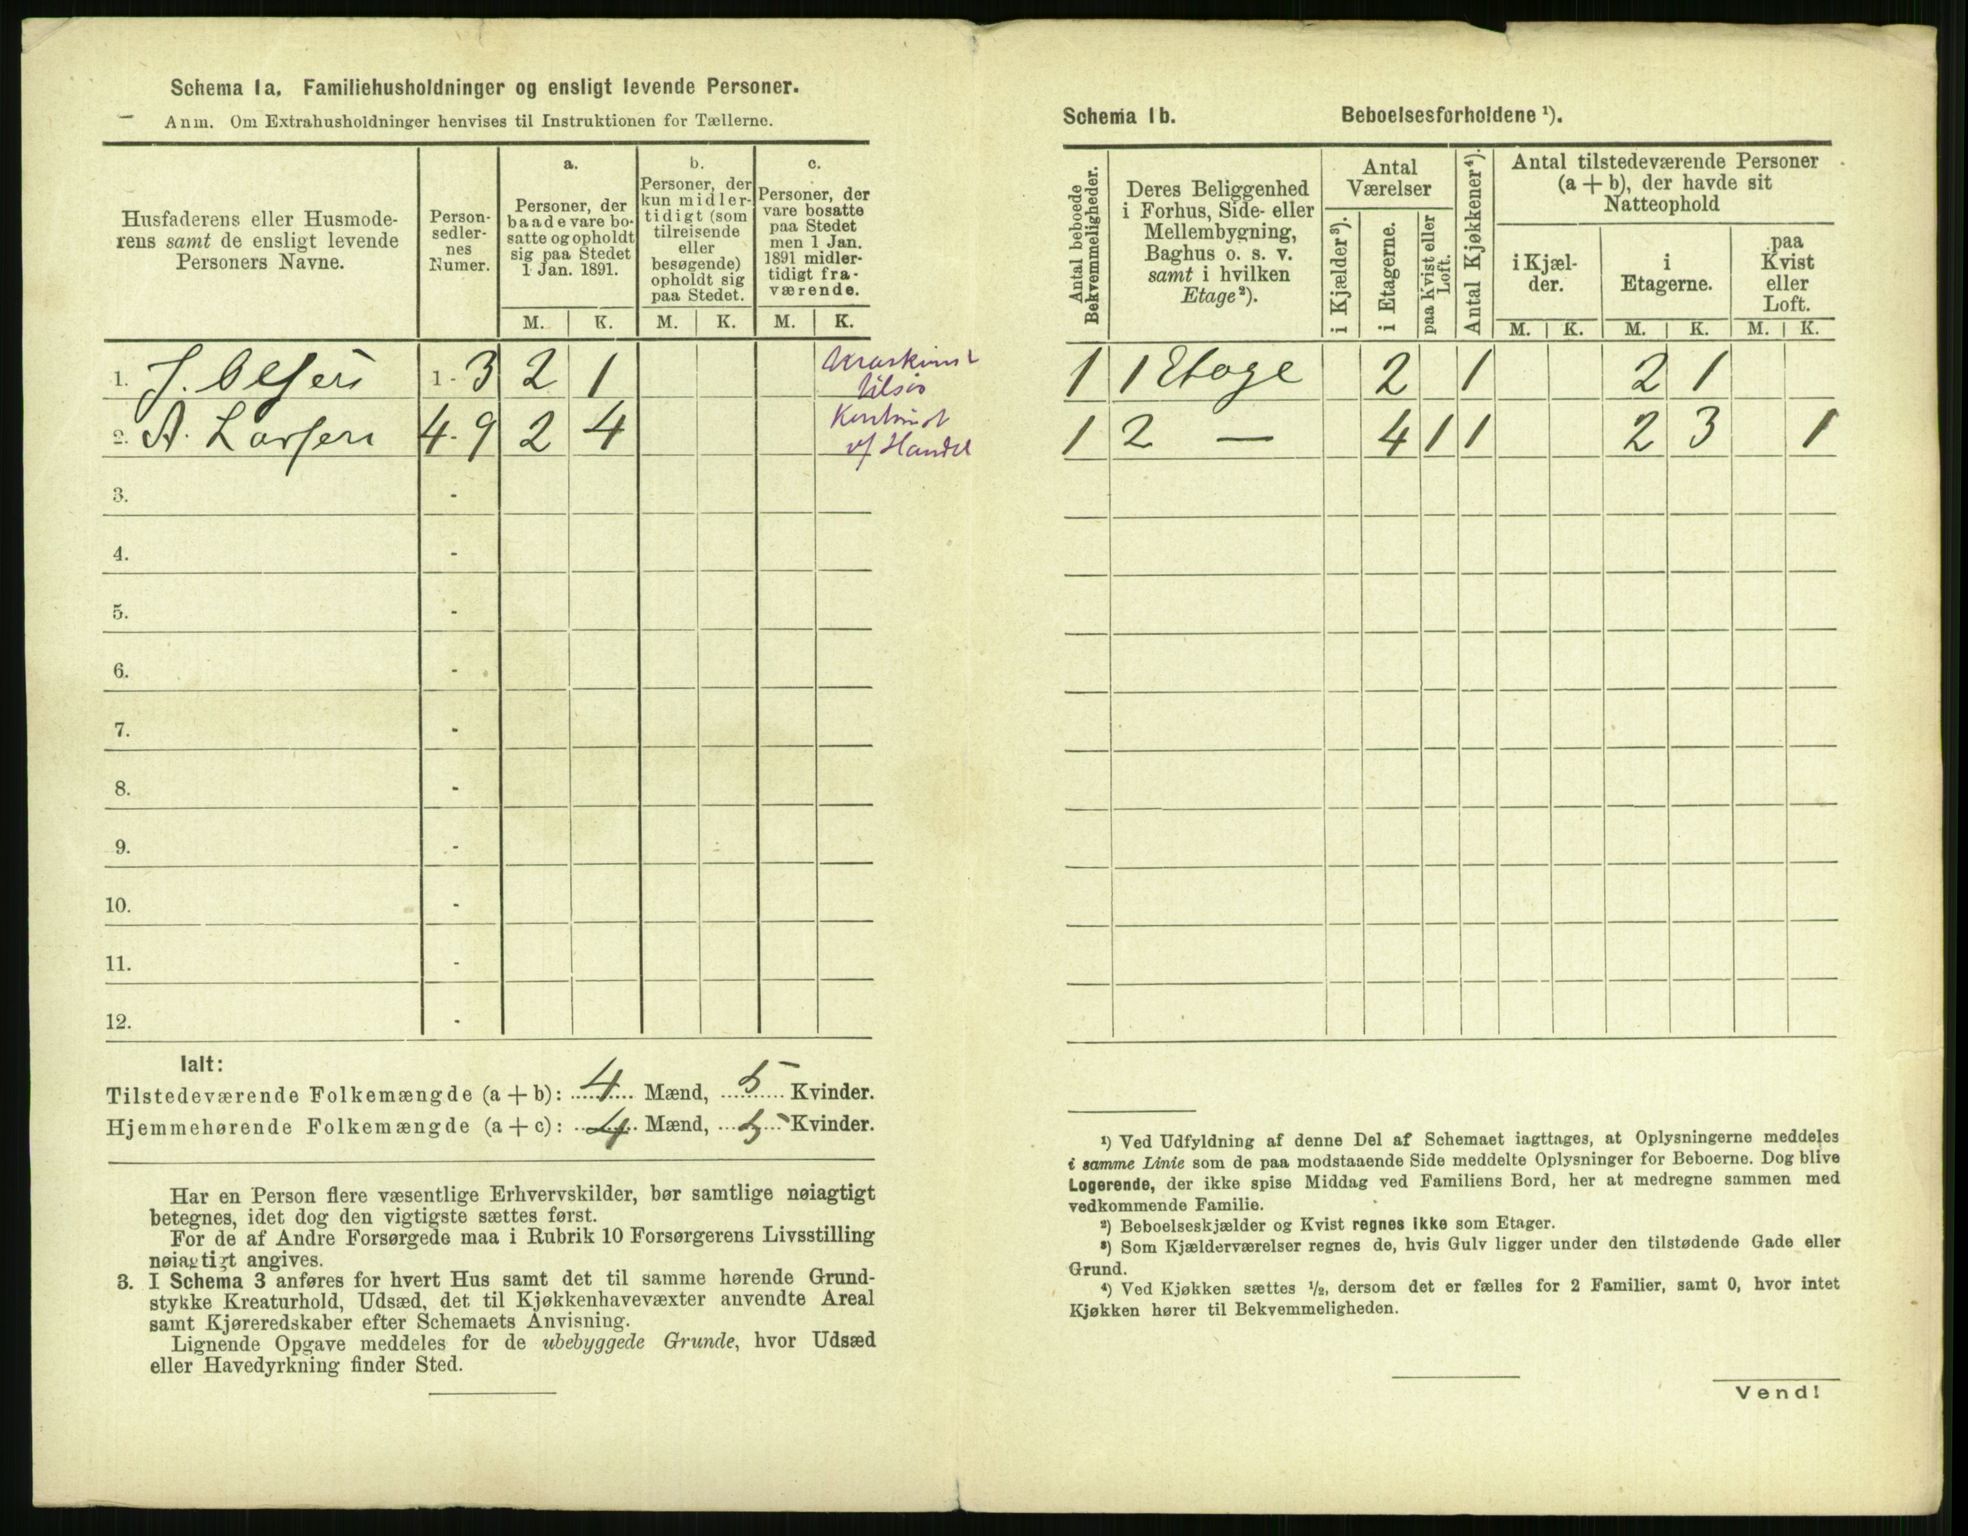 Schema 1a. Familiehusholdninger og ensligt levende Personer.
Anm. Om Extrahusholdninger henvises til Instruktionen for Tællerne.
Husfaderens eller Husmode-
rens samt de ensligt levende
Personers Navne.
Person-
sedler-
nes
Numer.
a.
Personer, der
baade vare bo-
satte og opholdt
sig paa Stedet
1 Jan. 1891.
b.
Personer, der
kun midler-
tidigt (som
tilreisende
eller
besøgende)
opholdt sig
paa Stedet.
c.
Personer, der
vare bosatte
paa Stedet
men 1 Jan.
1891 midler-
tidigt fra-
værende.
M. K. M. K. M. K.
1. J. Olsen 1 - 3 2 1
2. A. Larsen 4 - 9 2 4
v/ Handel
3. -
4. -
5. -
6. -
7. -
8. -
9. -
10. -
11. -
12. -
Ialt:
Tilstedeværende Folkemængde (a + b): 4 Mænd, 5 Kvinder.
Hjemmehørende Folkemængde (a + c): 4 Mænd, 5 Kvinder.
Har en Person flere væsentlige Erhvervskilder, bør samtlige nøiagtigt
betegnes, idet dog den vigtigste sættes først.
For de af Andre Forsørgede maa i Rubrik 10 Forsørgerens Livsstilling
nøiagtigt angives.
3. I Schema 3 anføres for hvert Hus samt det til samme hørende Grund-
stykke Kreaturhold, Udsæd, det til Kjøkkenhavevæxter anvendte Areal
samt Kjøreredskaber efter Schemaets Anvisning.
Lignende Opgave meddeles for de ubebyggede Grunde, hvor Udsæd
eller Havedyrkning finder Sted.
Schema 1b. Beboelsesforholdene ¹).
Antal beboede
Bekvemmeligheder.
Deres Beliggenhed
i Forhus, Side- eller
Mellembygning,
Baghus o. s. v.
samt i hvilken
Etage²).
Antal
Værelser
i Kjælder³).
i Etagerne.
paa Kvist eller
Loft.
Antal Kjøkkener⁴).
Antal tilstedeværende Personer
(a + b), der havde sit
Natteophold
i Kjæl-
der.
i
Etagerne.
paa
Kvist
eller
Loft.
M. K. M. K. M. K.
1 1 Etage 2 1 2 1
1 2 — 4 1 1 2 3 1
¹) Ved Udfyldning af denne Del af Schemaet iagttages, at Oplysningerne meddeles
i samme Linie som de paa modstaaende Side meddelte Oplysninger for Beboerne. Dog blive
Logerende, der ikke spise Middag ved Familiens Bord, her at medregne sammen med
vedkommende Familie.
²) Beboelseskjælder og Kvist regnes ikke som Etager.
³) Som Kjælderværelser regnes de, hvis Gulv ligger under den tilstødende Gade eller
Grund.
⁴) Ved Kjøkken sættes ½, dersom det er fælles for 2 Familier, samt 0, hvor intet
Kjøkken hører til Bekvemmeligheden.
Vend!